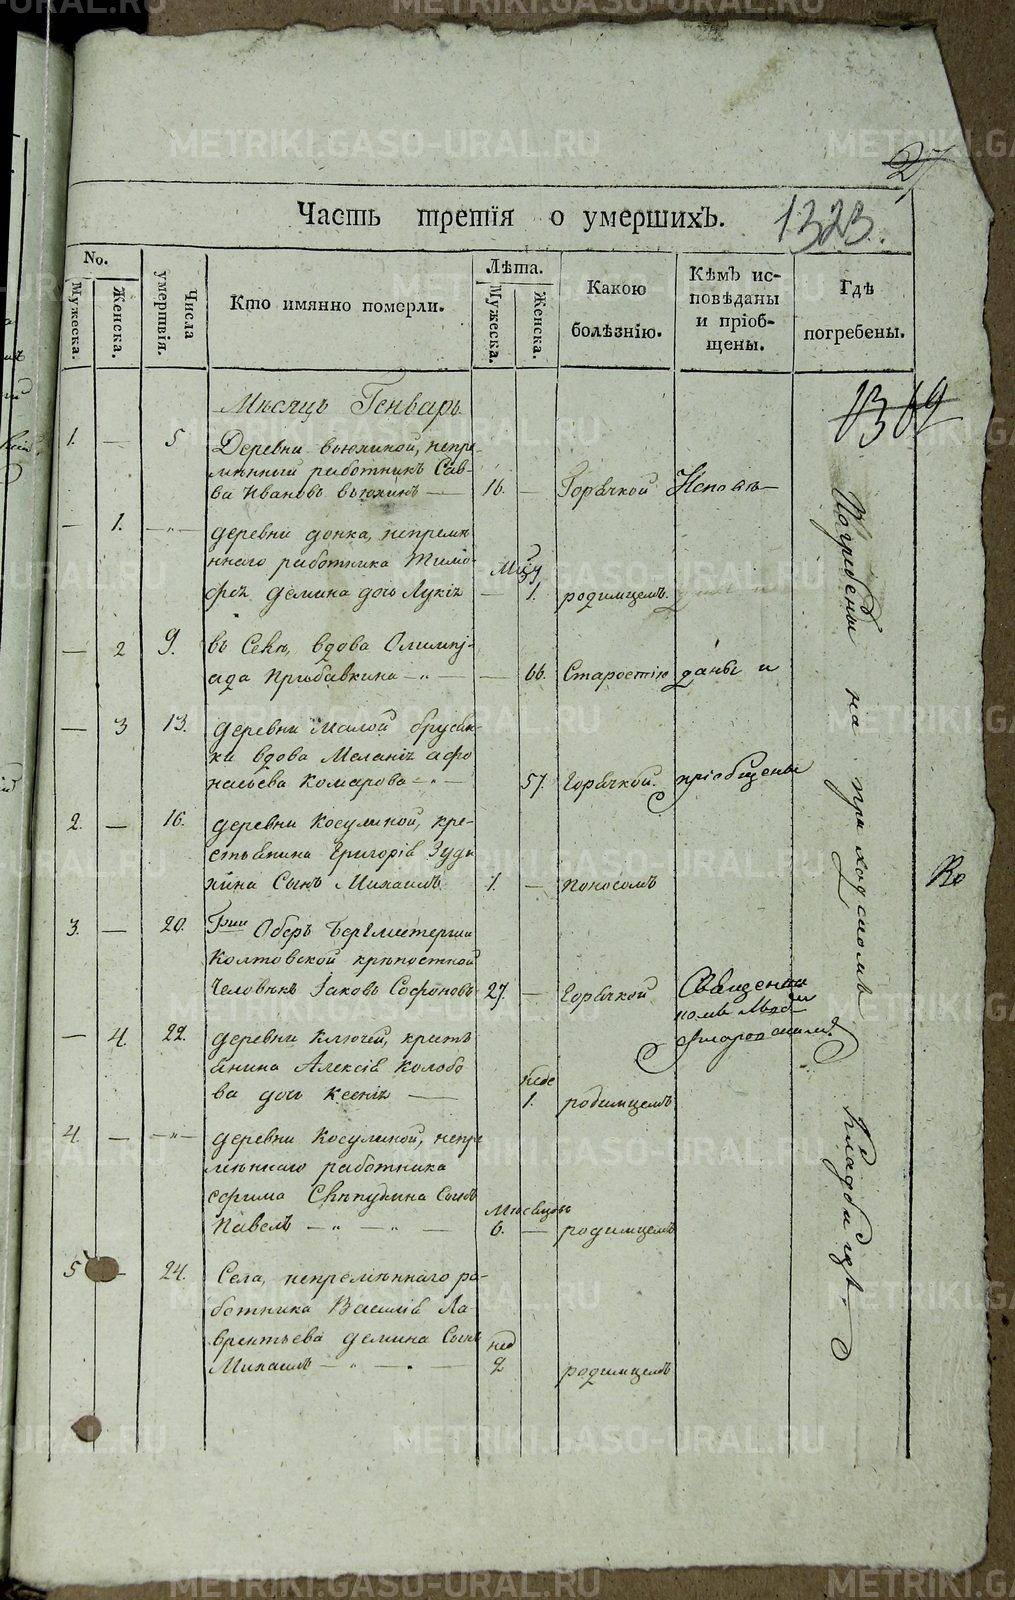 27
Часть третія о умершихъ.
1323.
No.
Мужеска.
Женска.
Числа умертвія.
Кто имянно померли.
Лѣта.
Мужеска.
Женска.
Какою болѣзнію.
Кѣмъ исповѣданы и пріобщены.
Гдѣ погребены.
1369
Мѣсяцъ Генварь
1. — 5 Деревни Вьюхиной, непре-
мѣнный работникъ Сав-
ва Ивановъ Вьюхинъ — 16. — Горячкой Исповѣ-
— 1. —„— деревни
непремѣ
ннаго работника Тимо-
фея Демина дочь Лукія — 1. родимцемъ.
— 2 9. въ Селѣ, вдова Олимпі-
ада Прибавкина —„— — 66. Старостію даны и
— 3 13. деревни Малой брусян-
ки вдова Меланія Афо
насьева Комарова —„— 57. Горячкой. пріобщены
2. — 16. деревни Косулиной, кре-
стьянина Григорія Зуды
хина Сынъ Михаилъ 1. — поносомъ
3. — 20. Гжи Оберъ Бергмейстерши
Колтовской крѣпостной
человѣкъ Іаковъ Софоновъ 27. — Горячкой Священни
комъ
— 4. 22. деревни Ключей, кресть
янина Алексія Колобо
ва дочь Ксенія — неде 1. родимцемъ
4. — —„— деревни Косулиной, непре
мѣннаго работника
Сынъ
Павелъ —„—„— Мѣсяцовъ 6. — родимцемъ
5 — 24. Села, непремѣннаго ра-
ботника Василія Ла-
врентьева Демина Сынъ
Михаилъ —„— нед 2 родимцемъ
Погребены на приходскомъ Кладбищѣ.
Во
METRIKI.GASO-URAL.RU